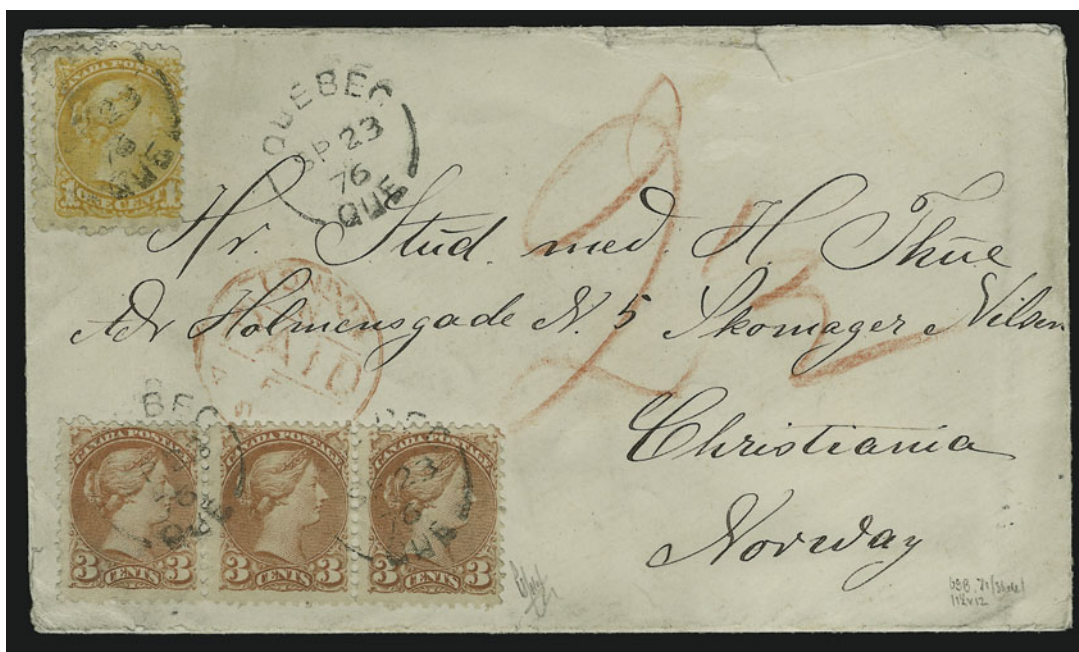 CANADA POSTAGE
ONE CENT
QUEBEC
SP 23
76
QUE
Hr. Stud. med. H. Thüe
Adr Holmensgade N. 5 Skomager Nilsen
LONDON
PAID
Christiania
Norway
BEC
QUE
23
76
CANADA POSTAGE
3 CENTS 3
CANADA POSTAGE
3 CENTS 3
CANADA POSTAGE
3 CENTS 3
2
11½x12